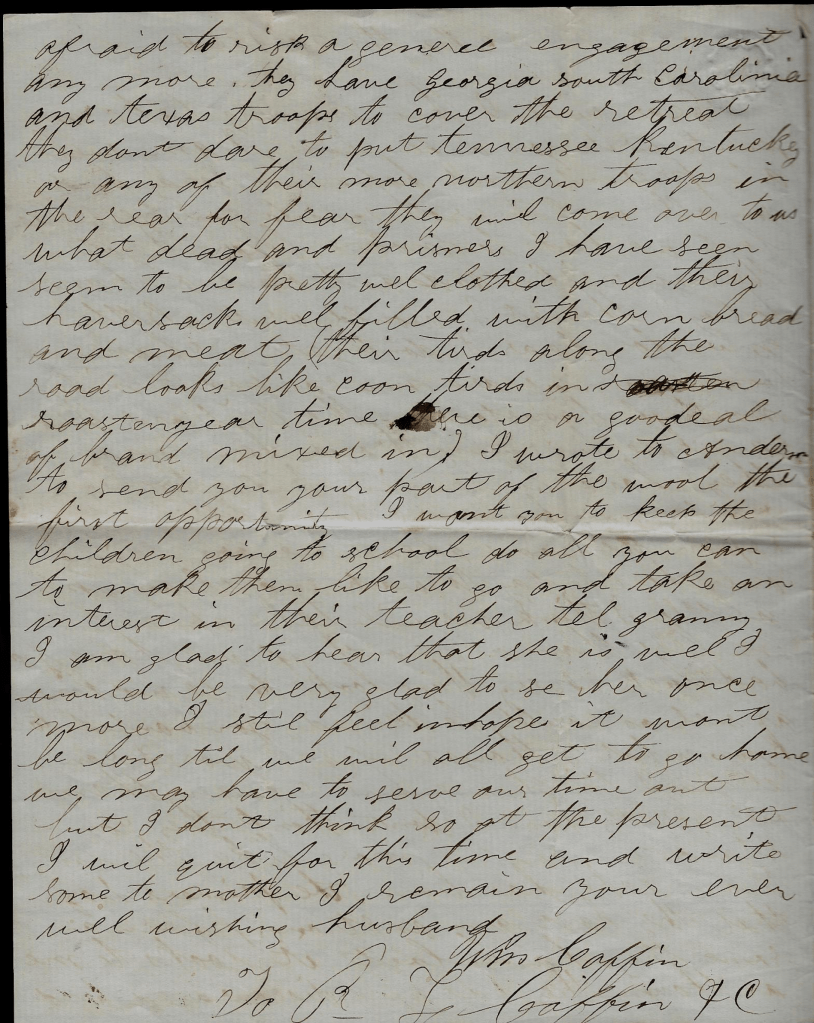 afraid to risk a generel engagement
any more. they have Georgia south Carolinia
and texas troops to cover the retreat
they dont dare to put tennessee Kentucky
or any of their more northern troops in
the rear for fear they wil come over to us
what dead and prisners I have seen
seem to be pretty wel clothed and their
haversacks wel filled with corn bread
and meat (their tirds along the
road looks like coon tirds in
roastenyear time there is a goodeal
of brand mixed in) I wrote to Anderson
to send you your part of the wool the
first opportunity I want you to keep the
children going to school do all you can
to make them like to go and take an
interest in their teacher tel granny
I am glad to hear that she is well I
would be very glad to se her once
more I stil feel inhope it wont
be long til we wil all get to go home
we may have to serve our time out
but I dont think so at the present
I wil quit for this time and write
some to mother I remain your ever
well wishing husband
Wm Coffin
To R L Coffin & C